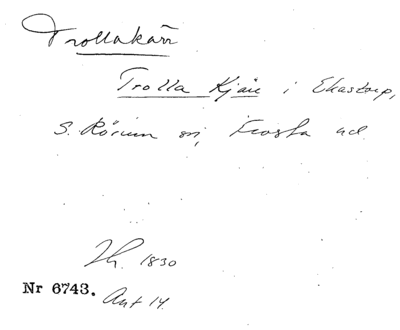 Trollakärr
Trolla Kjärr i Ekastorp,
S. Rörum sn, Frosta hd.
1830
Nr 6743. Ant 14.